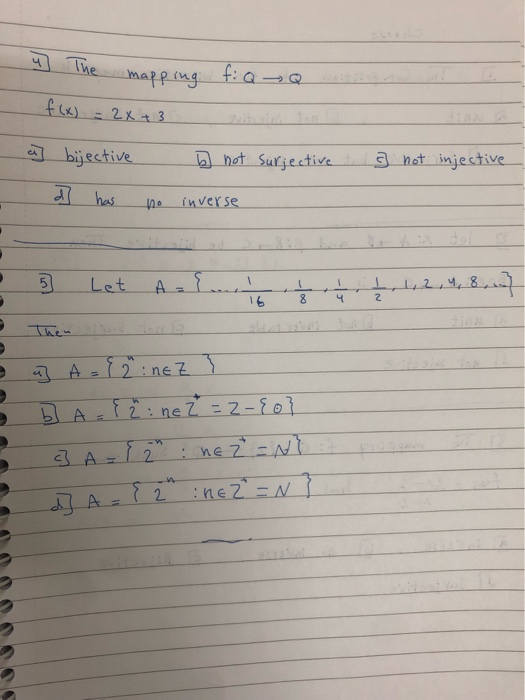 4] The mapping f: Q → Q
f(x) = 2x + 3
a] bijective b] not surjective c] not injective
d] has no inverse
5] Let A = {..., 1/16, 1/8, 1/4, 1/2, 1, 2, 4, 8, ...}
Then
a] A = {2ⁿ : n∈Z }
b] A = {2ⁿ : n∈Z* = Z - {0}
c] A = {2⁻ⁿ : n∈Z⁺ = N}
d] A = {2⁻ⁿ : n∈Z⁺ = N }